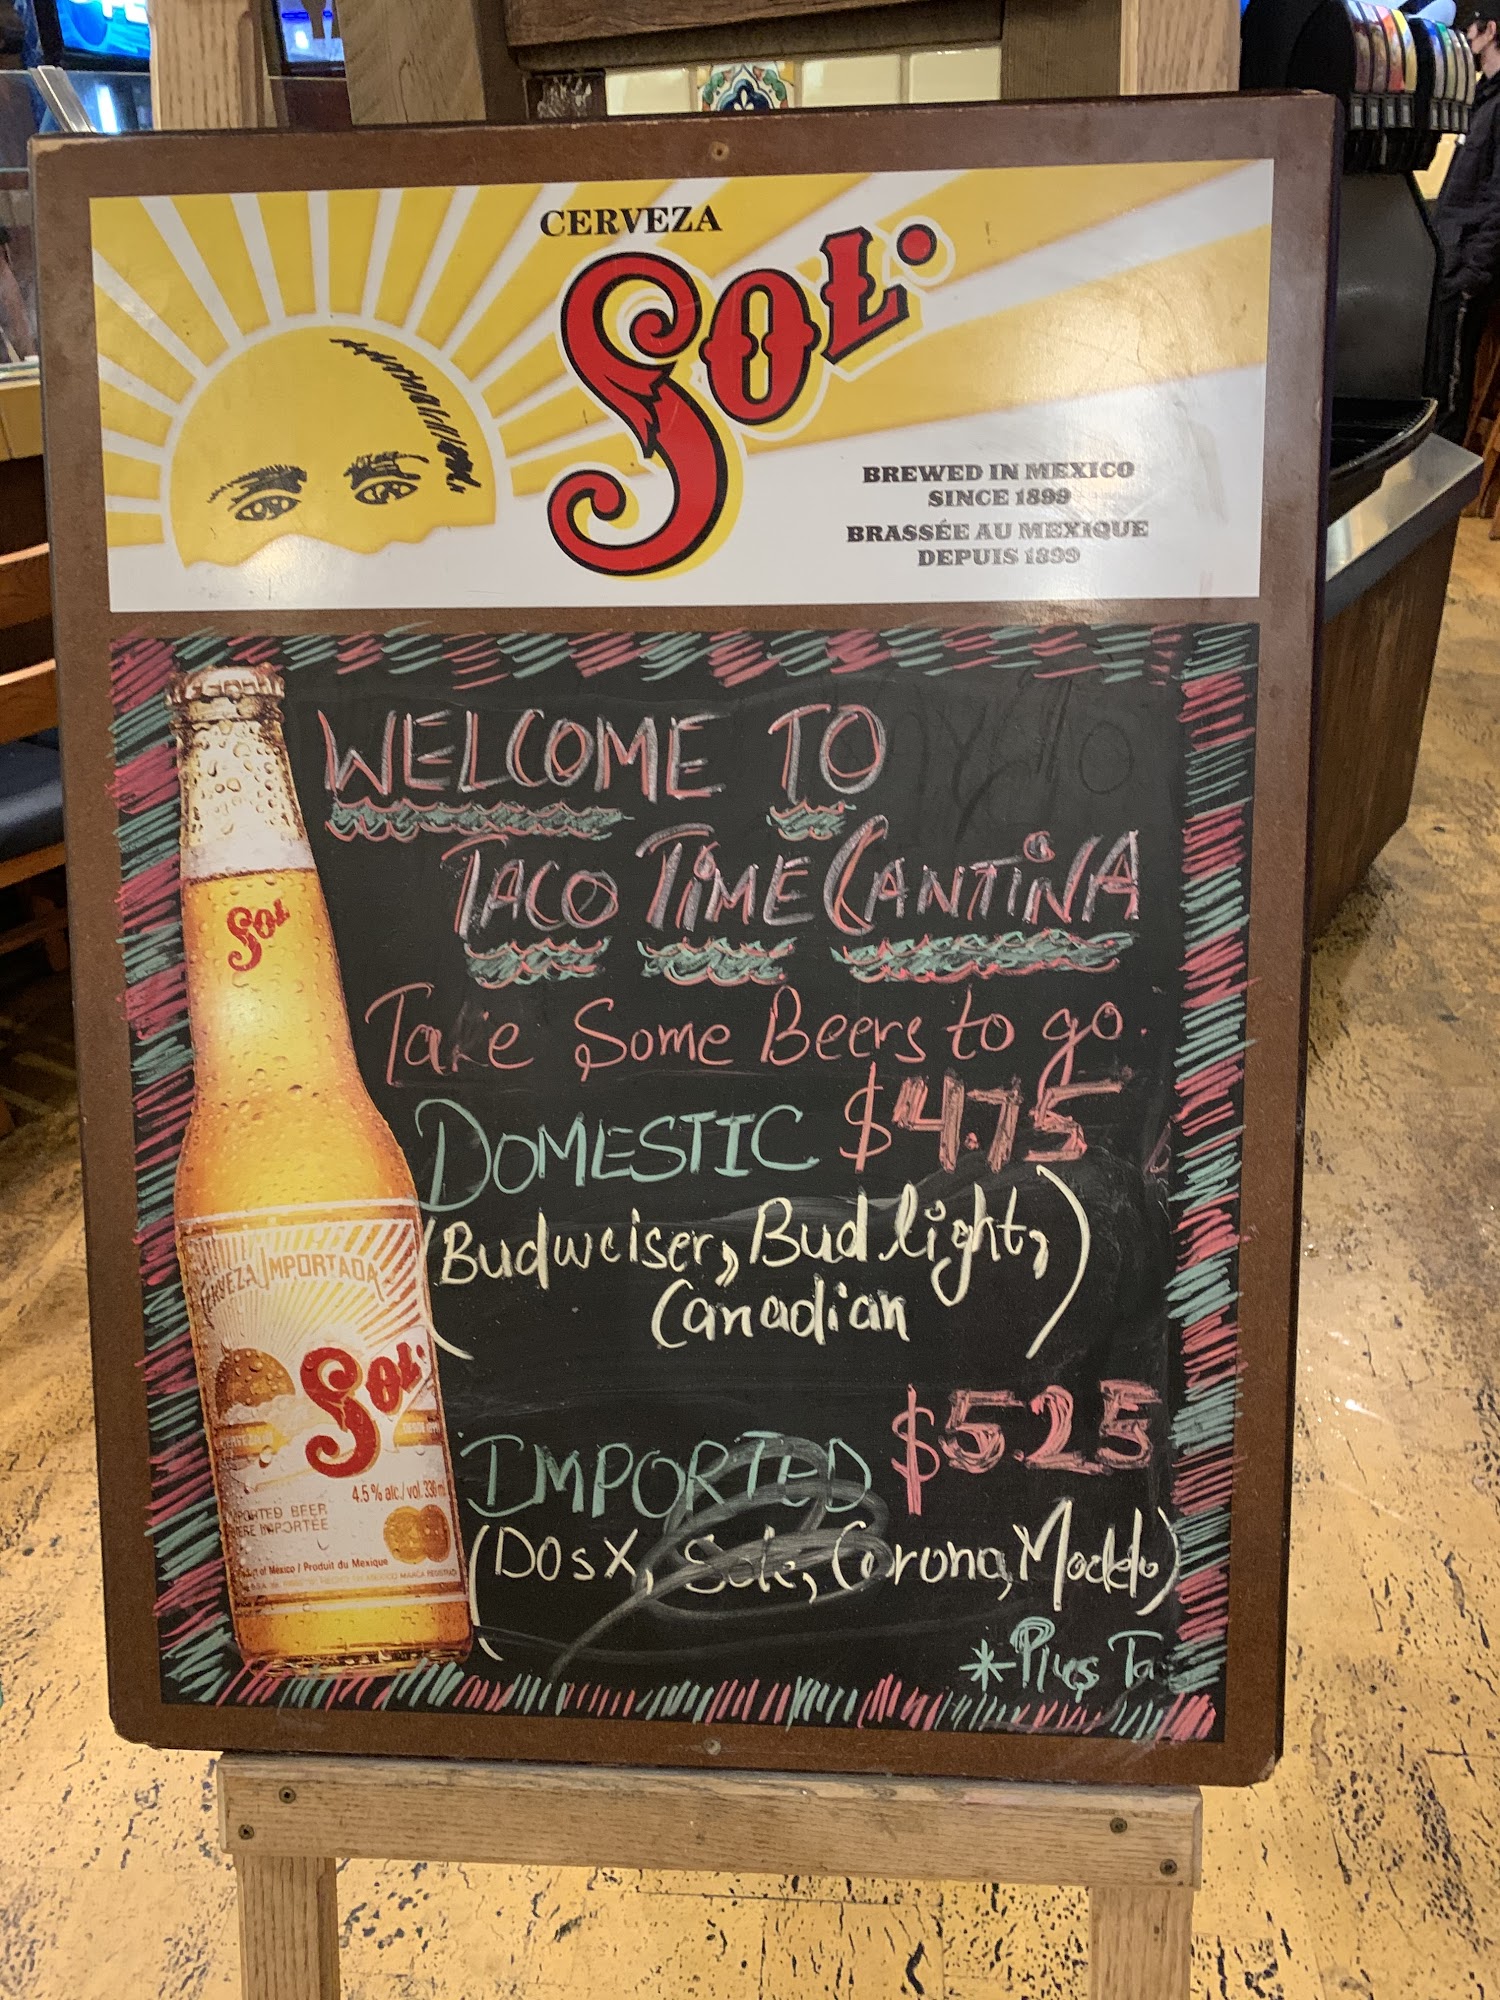 CERVEZA
SOL.
BREWED IN MEXICO
SINCE 1899
BRASSÉE AU MEXIQUE
DEPUIS 1899
WELCOME TO
TACO TIME CANTINA
Take Some Beers to go.
DOMESTIC $4.75
(Budweiser, Bud light,)
Canadian
IMPORTED $5.25
(DOSX, Sole, Corona, Modelo)
*Plus Ta
SOL
CERVEZA IMPORTADA
SOL.
4.5% alc./vol. 330 ml
IMPORTED BEER
BIÈRE IMPORTÉE
of México / Produit du Mexique